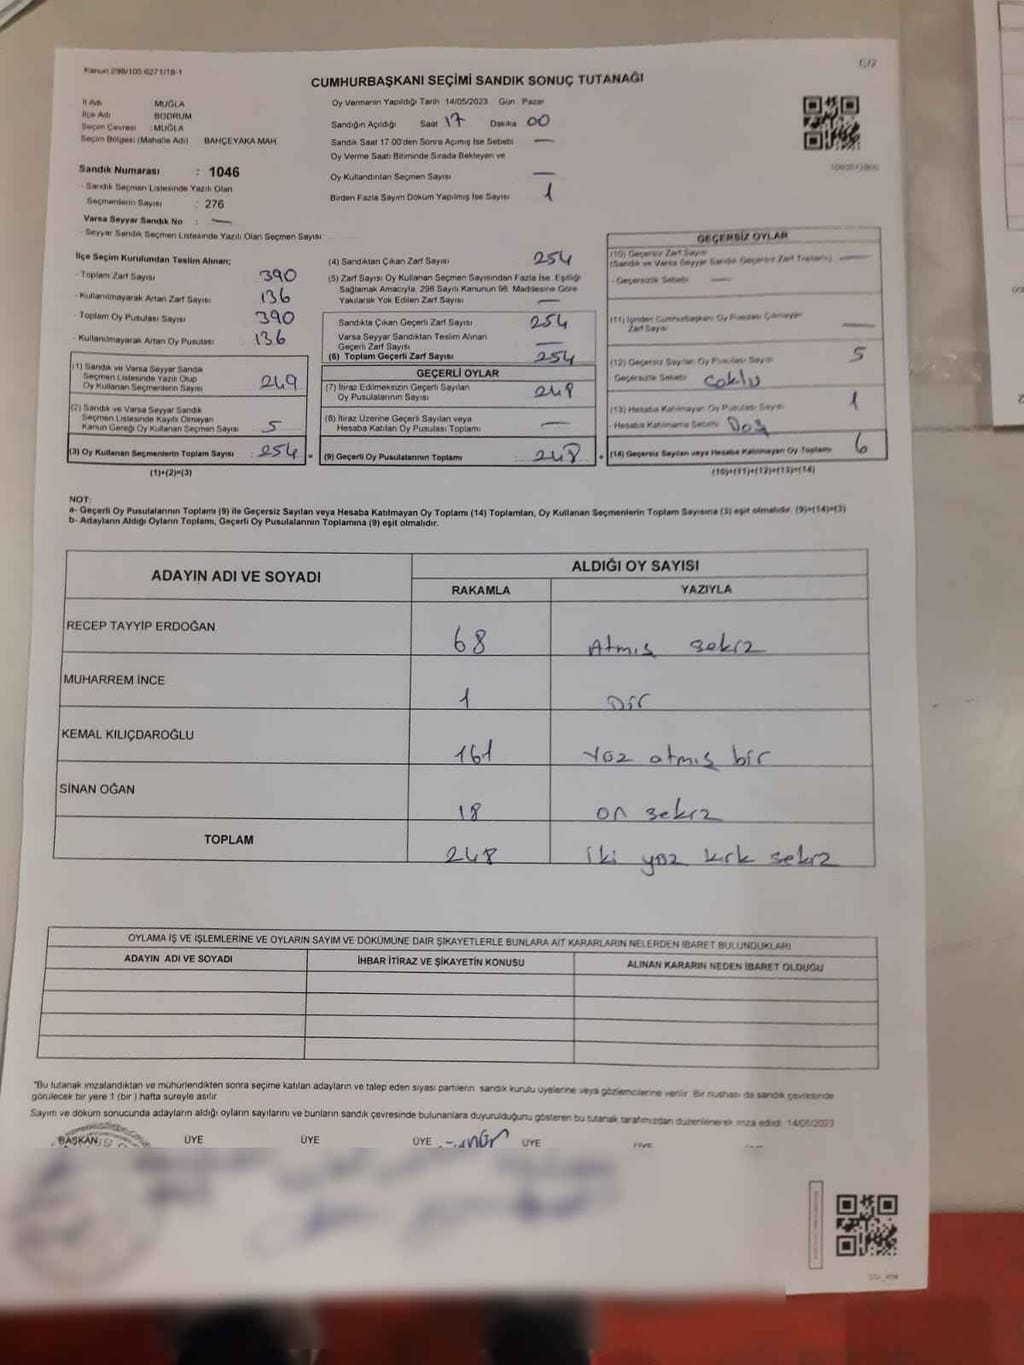 Kanun:298/105-6271/18-1
C/2
CUMHURBAŞKANI SEÇİMİ SANDIK SONUÇ TUTANAĞI
İl Adı MUĞLA
İlçe Adı BODRUM
Seçim Çevresi : MUĞLA
Seçim Bölgesi (Mahalle Adı) BAHÇEYAKA MAH.
Sandık Numarası : 1046
- Sandık Seçmen Listesinde Yazılı Olan
Seçmenlerin Sayısı : 276
Varsa Seyyar Sandık No : —
- Seyyar Sandık Seçmen Listesinde Yazılı Olan Seçmen Sayısı:
Oy Vermenin Yapıldığı Tarih :14/05/2023 Gün: Pazar
Sandığın Açıldığı Saat 17 Dakika 00
Sandık Saat 17.00'den Sonra Açılmış İse Sebebi —
Oy Verme Saati Bitiminde Sırada Bekleyen ve
Oy Kullandırılan Seçmen Sayısı —
Birden Fazla Sayım Döküm Yapılmış İse Sayısı 1
İlçe Seçim Kurulundan Teslim Alınan;
- Toplam Zarf Sayısı 390
- Kullanılmayarak Artan Zarf Sayısı 136
- Toplam Oy Pusulası Sayısı 390
- Kullanılmayarak Artan Oy Pusulası 136
(1) Sandık ve Varsa Seyyar Sandık
Seçmen Listesinde Yazılı Olup
Oy Kullanan Seçmenlerin Sayısı 249
(2) Sandık ve Varsa Seyyar Sandık
Seçmen Listesinde Kayıtlı Olmayan
Kanun Gereği Oy Kullanan Seçmen Sayısı 5
(3) Oy Kullanan Seçmenlerin Toplam Sayısı : 254 =
(1)+(2)=(3)
(4) Sandıktan Çıkan Zarf Sayısı 254
(5) Zarf Sayısı Oy Kullanan Seçmen Sayısından Fazla İse, Eşitliği
Sağlamak Amacıyla, 298 Sayılı Kanunun 98. Maddesine Göre
Yakılarak Yok Edilen Zarf Sayısı —
Sandıkta Çıkan Geçerli Zarf Sayısı 254
Varsa Seyyar Sandıktan Teslim Alınan
Geçerli Zarf Sayısı —
(6) Toplam Geçerli Zarf Sayısı 254
GEÇERLİ OYLAR
(7) İtiraz Edilmeksizin Geçerli Sayılan
Oy Pusulalarının Sayısı 248
(8) İtiraz Üzerine Geçerli Sayılan veya
Hesaba Katılan Oy Pusulası Toplamı —
(9) Geçerli Oy Pusulalarının Toplamı : 248 +
GEÇERSİZ OYLAR
(10) Geçersiz Zarf Sayısı
(Sandık ve Varsa Seyyar Sandık Geçersiz Zarf Toplamı) —
- Geçersizlik Sebebi —
(11) İçinden Cumhurbaşkanı Oy Pusulası Çıkmayan
Zarf Sayısı —
(12) Geçersiz Sayılan Oy Pusulası Sayısı 5
Geçersizlik Sebebi Çoklu
(13) Hesaba Katılmayan Oy Pusulası Sayısı 1
- Hesaba Katılmama Sebebi Boş
(14) Geçersiz Sayılan veya Hesaba Katılmayan Oy Toplamı 6
(10)+(11)+(12)+(13)=(14)
NOT:
a- Geçerli Oy Pusulalarının Toplamı (9) ile Geçersiz Sayılan veya Hesaba Katılmayan Oy Toplamı (14) Toplamları, Oy Kullanan Seçmenlerin Toplam Sayısına (3) eşit olmalıdır. (9)+(14)=(3)
b- Adayların Aldığı Oyların Toplamı, Geçerli Oy Pusulalarının Toplamına (9) eşit olmalıdır.
ADAYIN ADI VE SOYADI ALDIĞI OY SAYISI
RAKAMLA YAZIYLA
RECEP TAYYİP ERDOĞAN 68 Atmış sekiz
MUHARREM İNCE 1 Bir
KEMAL KILIÇDAROĞLU 161 Yüz atmış bir
SİNAN OĞAN 18 on sekiz
TOPLAM 248 iki yüz kırk sekiz
OYLAMA İŞ VE İŞLEMLERİNE VE OYLARIN SAYIM VE DÖKÜMÜNE DAİR ŞİKAYETLERLE BUNLARA AİT KARARLARIN NELERDEN İBARET BULUNDUKLARI
ADAYIN ADI VE SOYADI İHBAR İTİRAZ VE ŞİKAYETİN KONUSU ALINAN KARARIN NEDEN İBARET OLDUĞU
*Bu tutanak imzalandıktan ve mühürlendikten sonra seçime katılan adayların ve talep eden siyasi partilerin sandık kurulu üyelerine veya gözlemcilerine verilir. Bir nüshası da sandık çevresinde
görülecek bir yere 1 (bir) hafta süreyle asılır.
Sayım ve döküm sonucunda adayların aldığı oyların sayılarını ve bunların sandık çevresinde bulunanlara duyurulduğunu gösteren bu tutanak tarafımızdan düzenlenerek imza edildi. 14/05/2023
BAŞKAN ÜYE ÜYE ÜYE ÜYE